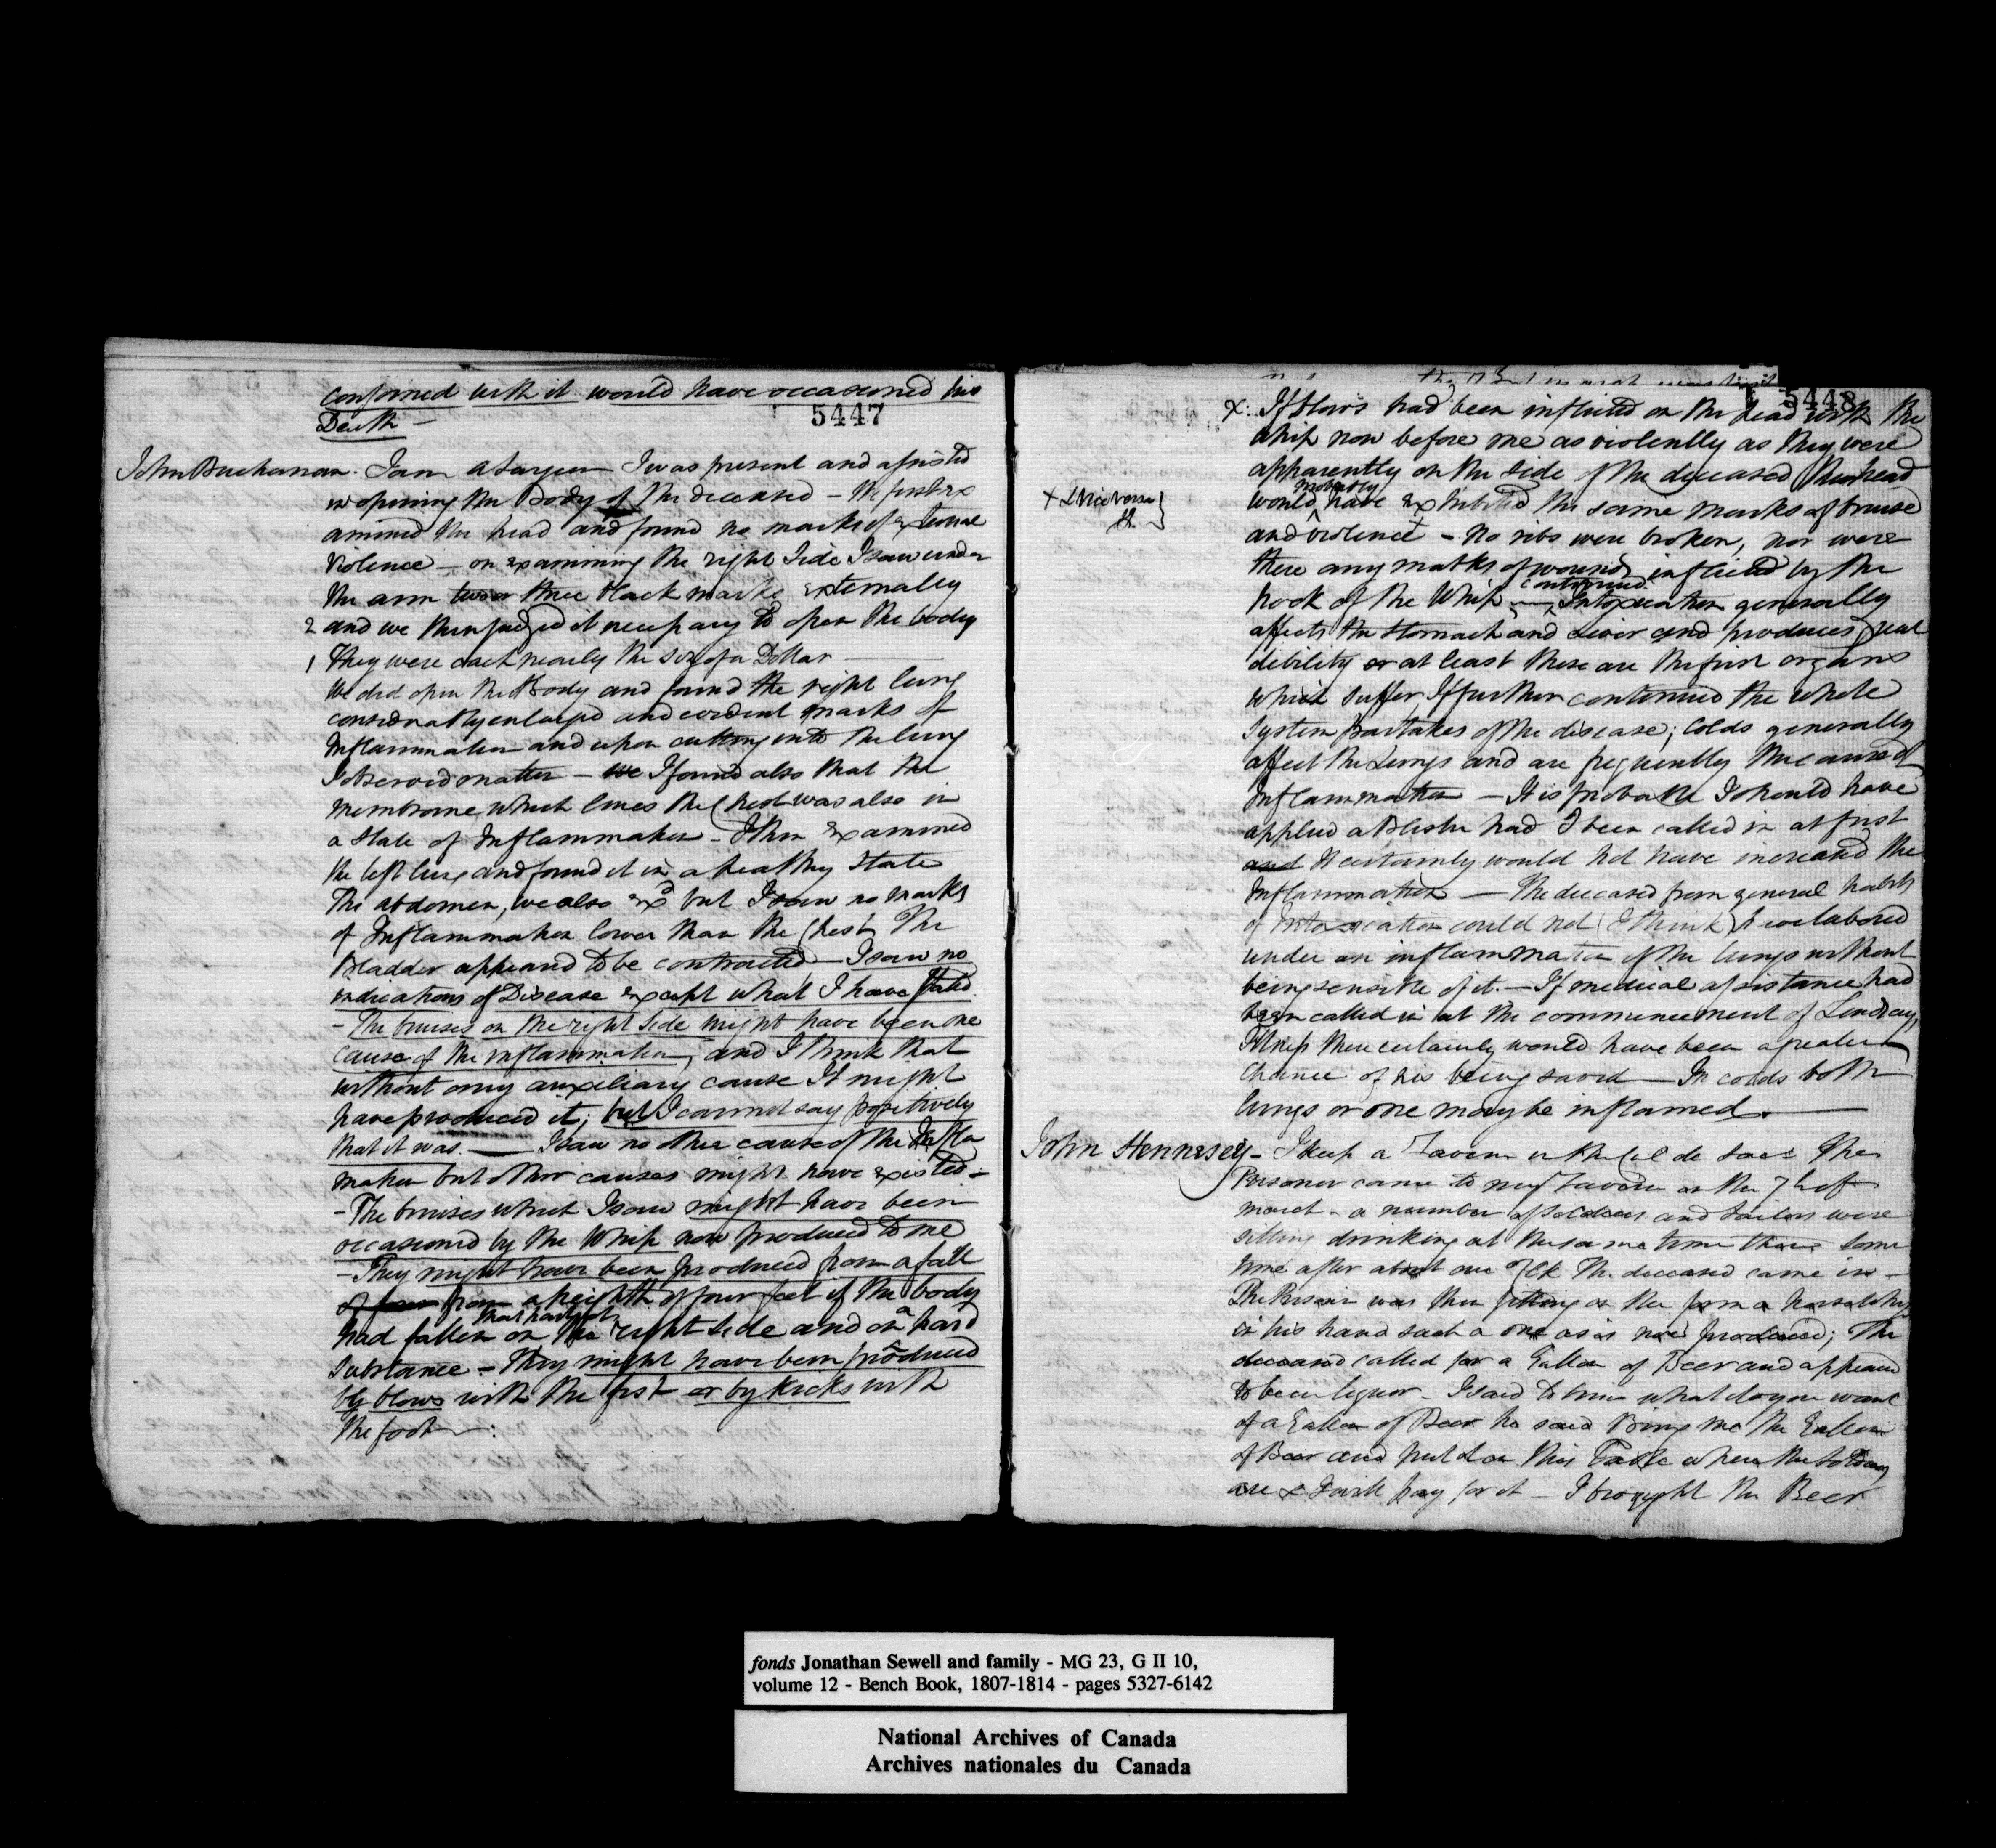 confined with it would have occasioned his
Death —
5447
John Buchanan. I am a Surgeon I was present and assisted
in opening the Body of the deceased — We first ex
amined the head and found no marks of external
violence — on examining the right Side I saw under
the arm two or three black marks externally
2 and we then judged it necessary to open the body
1 They were each nearly the size of a Dollar
We did open the Body and found the right lung
considerably enlarged and evident marks of
Inflammation and upon cutting into the lung
I observed matter — we I found also that the
membrane which lines the Chest was also in
a State of Inflammation — I then examined
the left lung and found it in a healthy State
The abdomen, we also exd but I saw no marks
of Inflammation lower than the Chest. The
Bladder appeared to be contracted — I saw no
indications of Disease except what I have stated
- The bruises on the right side might have been one
cause of the inflammation, and I think that
without any auxiliary cause It might
have produced it; but I cannot say positively
that it was. — I saw no other cause of the Infla
mation but other causes might have existed —
- The bruises which I saw might have been
occasioned by the Whip now produced to me
- They might have been produced from a fall
of four from a heighth of four feet if the body
had fallen on that part of the right side and on a hard
substance — They might have been produced
by blows with the fist or by kicks with
the foot —:
5448
x. If blows had been inflicted on the head with the
whip now before me as violently as they were
apparently on the side of the deceased the head
would probably have exhibited the same marks of bruise
+ & vice versa
and violence + — No ribs were broken, nor were
there any marks of wounds inflicted by the
hook of the Whip — continued Intoxication generally
affects the Stomach and Liver and produces great
debility or at least these are the first organs
which suffer, If further continued the whole
System partakes of the disease; Colds generally
affect the Lungs and are frequently the cause of
Inflammation — It is probable I should have
applied a Blister had I been called in at first
and It certainly would not have increased the
Inflammation — The deceased from general habits
of Intoxication could not (I think) have labored
under an inflammation of the lungs without
being sensible of it. — If medical assistance had
been called in at the commencement of Lindsay's
Illness there certainly would have been a greater
chance of his being saved — In colds both
lungs or one may be inflamed. —
John Hennesey — I keep a Tavern in the Cul de Sac. The
Prisoner came to my Tavern on the 7th of
March — a number of soldiers and sailors were
sitting drinking at the same time there some
time after about one oClk the deceased came in —
The Prisoner was then sitting on the form a
in his hand such a one as is now produced; The
deceased called for a Gallon of Beer and appeared
to be in liquor — I said to him what do you want
of a Gallon of Beer he said Bring me the Gallon
of Beer and put it on this Table where the Soldiers
are & I will pay for it — I brought the Beer
fonds Jonathan Sewell and family - MG 23, G II 10,
volume 12 - Bench Book, 1807-1814 - pages 5327-6142
National Archives of Canada
Archives nationales du Canada